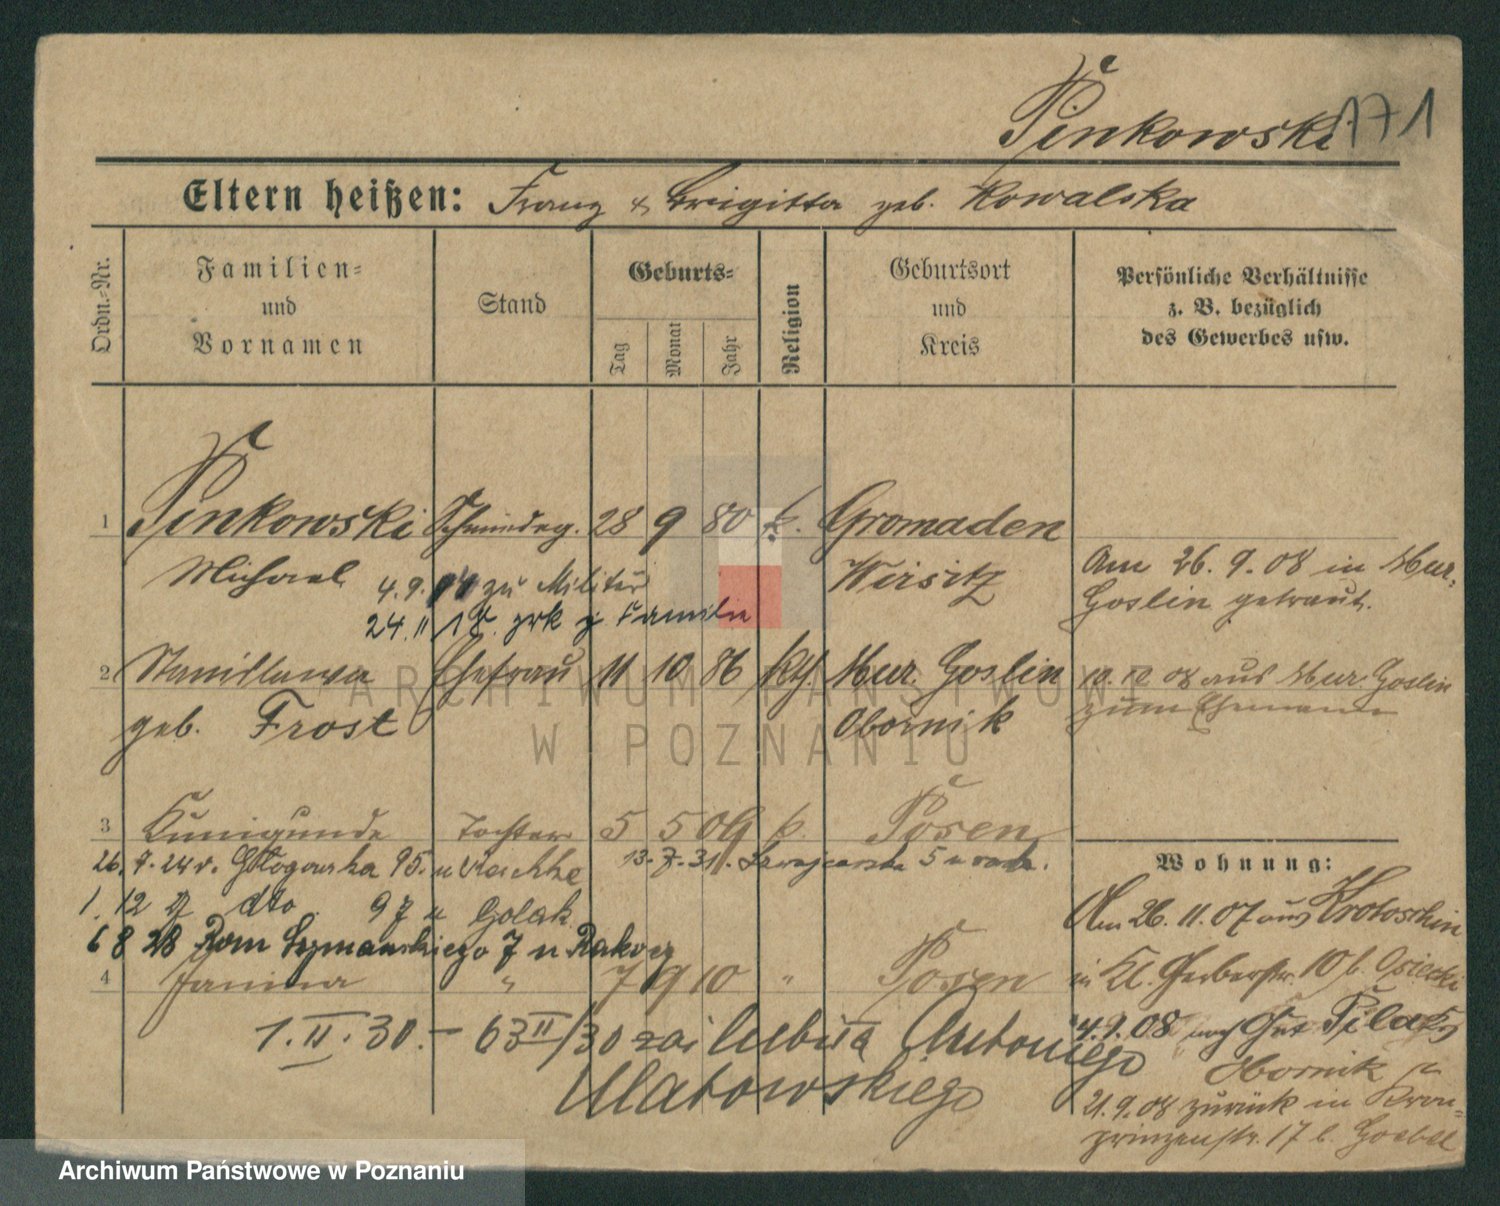 Pinkowski 171
Eltern heißen: Franz & Brigitta geb. Kowalska
Ordn.-Nr.
Familien-
und
Vornamen
Stand
Geburts-
Tag
Monat
Jahr
Religion
Geburtsort
und
Kreis
Persönliche Verhältnisse
z. B. bezüglich
des Gewerbes usw.
1 Pinkowski Schmiedeg. 28 9 80 k. Gromaden
Michael Wirsitz
4.9. zu Militär
24.11.18. zrk z Familie
Am 26. 9. 08 in Mur.
Goslin getraut.
2 Stanislawa Ehefrau 11 10 86 kth. Mur. Goslin
geb. Frost Obornik
10. 12 08 aus Mur. Goslin
zum Ehemann
3 Kunigunde Tochter 5 5 09 k. Posen
26.7.24 v. Głogowska 95. u Reschke 13.7.31.
1.12 27 dto 97 u Golak
6 8 28 Rom Szymańskiego 7 u
4 Janina " 7 9 10 " Posen
1. II. 30. – 63 II/30 zai Antoniego
Wohnung:
Am 26. 11. 07 aus Krotoschin
in Kl. Gerberstr. 10 b. Osiecki
4.9.08 nach Gut
Obornik
21.9.08 zurück in Kron-
prinzenstr. 17 b. Goebel
ARCHIWUM PAŃSTWOWE
W POZNANIU
Archiwum Państwowe w Poznaniu